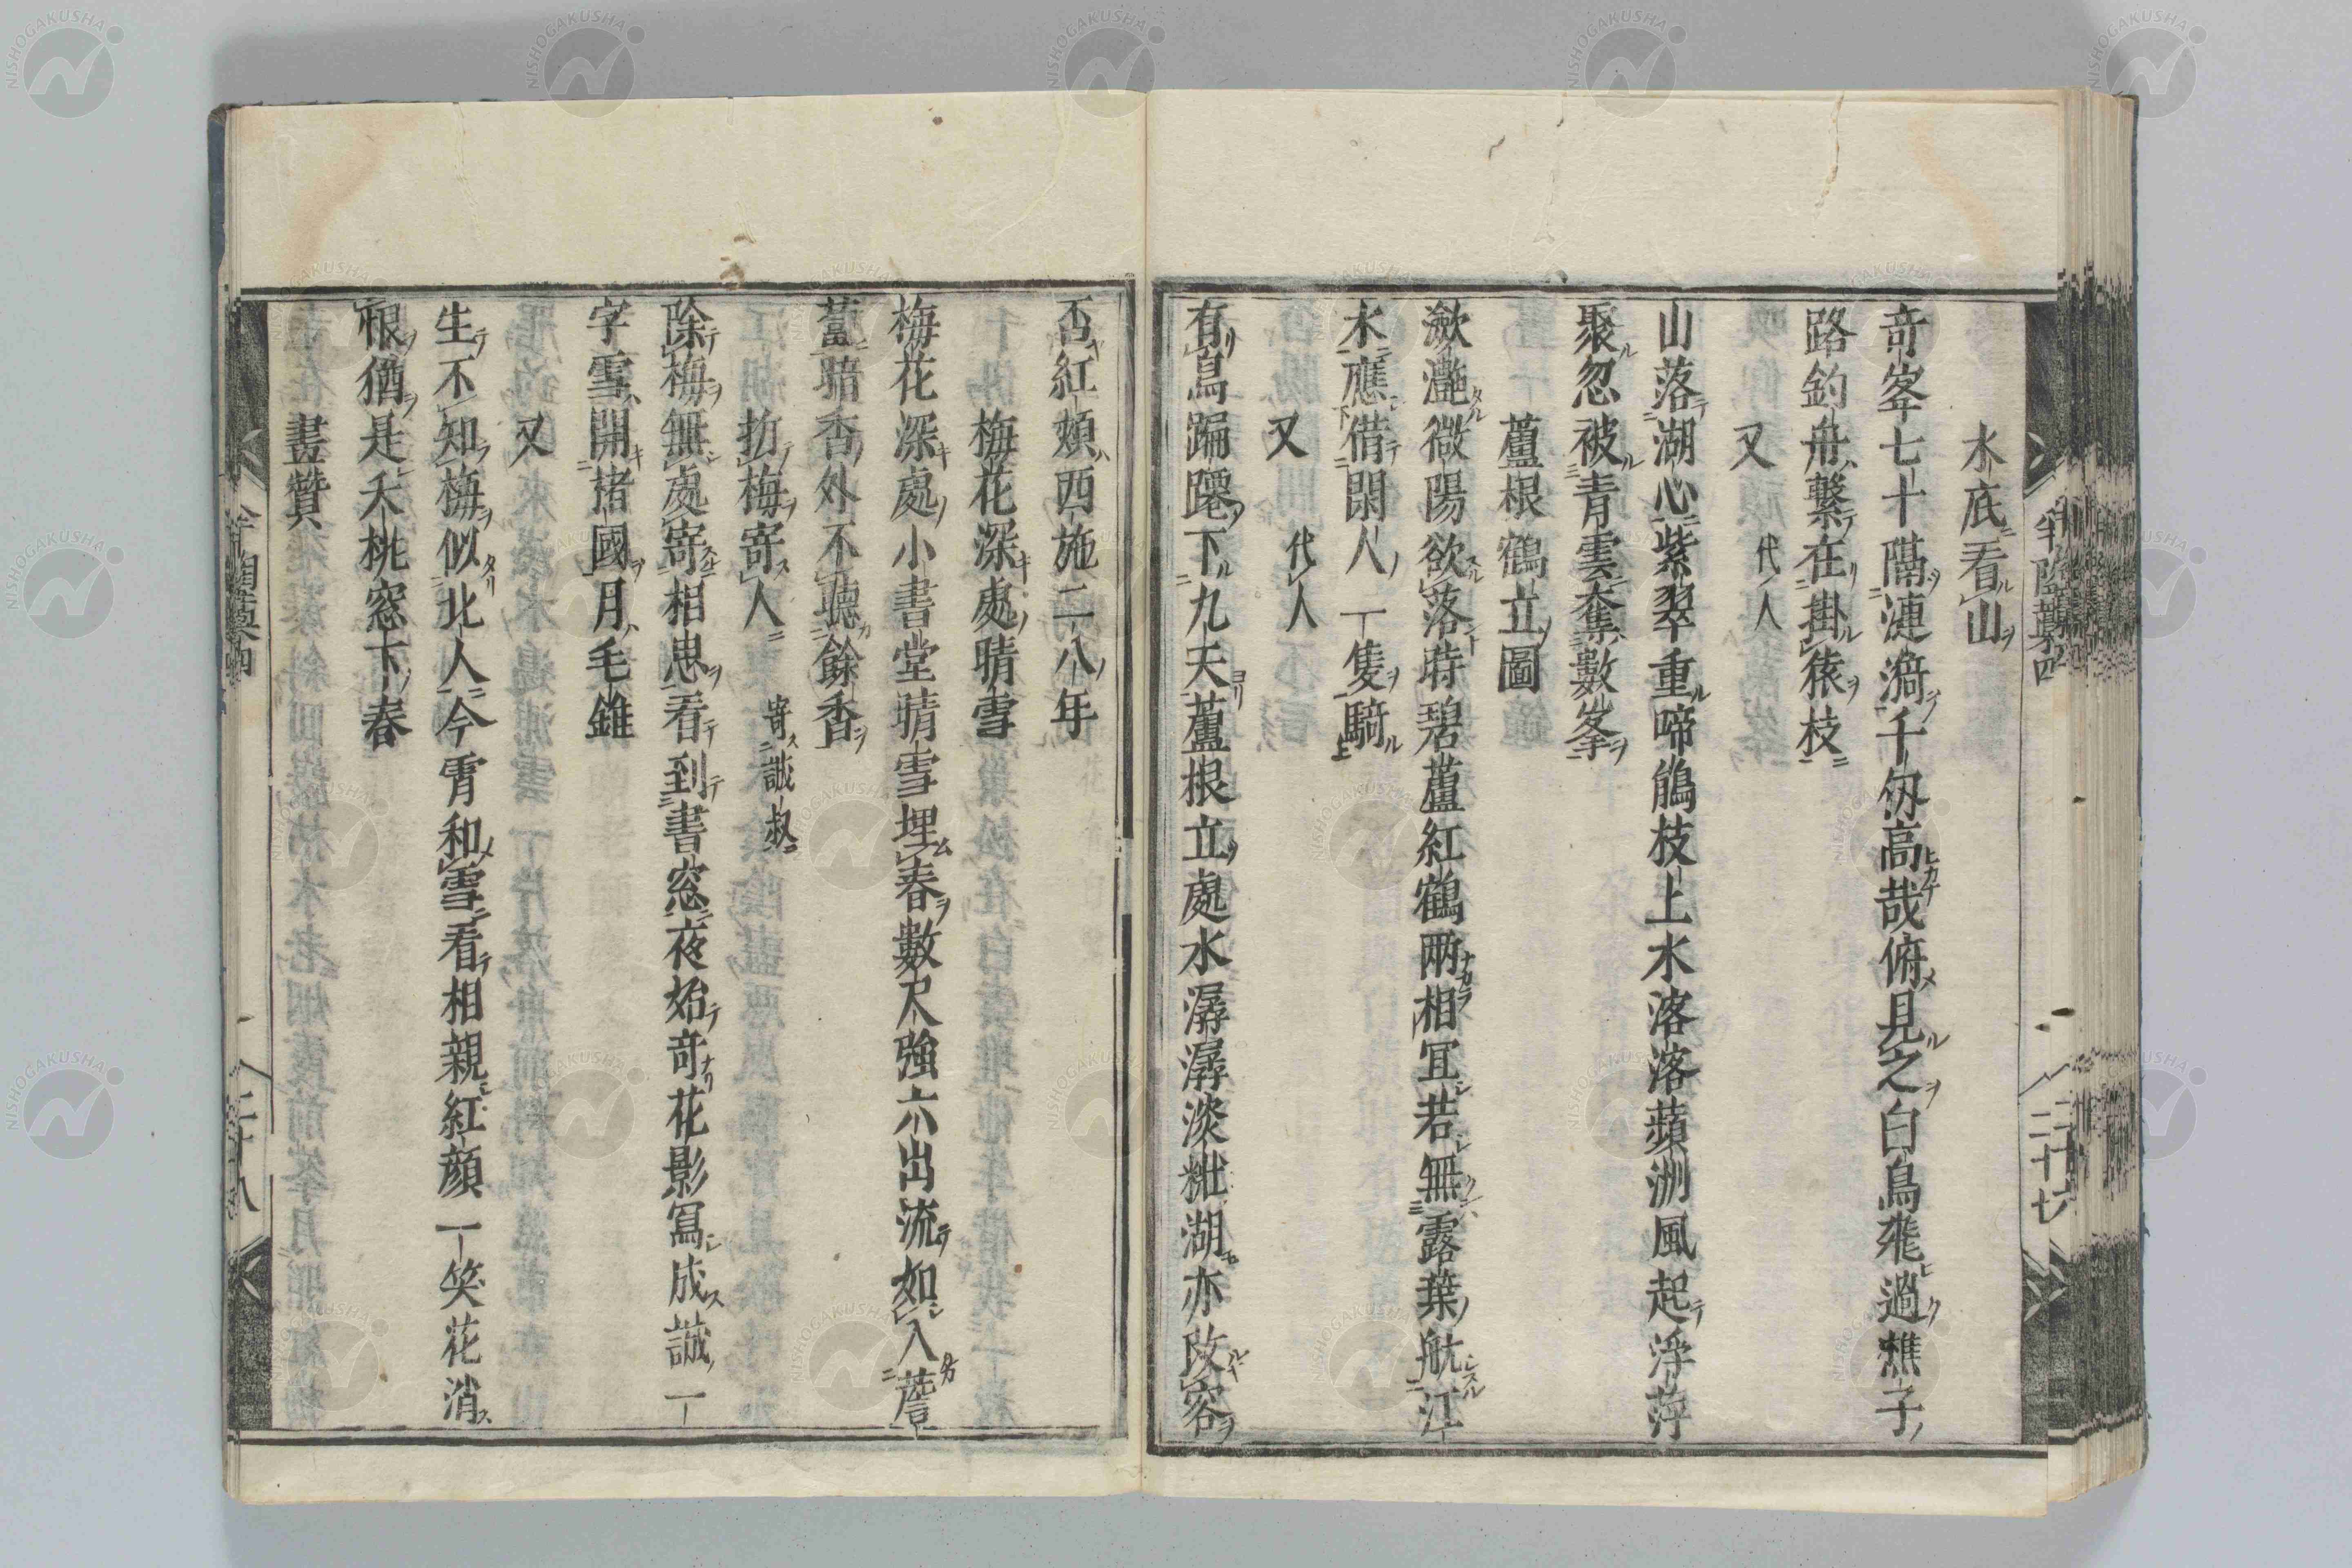 水底看山
奇峯七十隔漣漪千仭高哉俯見之白鳥飛過樵子
路釣舟繋在掛猿枝
又　代人
山落湖心紫翠重啼鵑枝上水溶溶蘋洲風起浮萍
聚忽被青雲奪數峯
蘆根鶴立圖
瀲灔微陽欲落時碧蘆紅鶴兩相宜若無露葉航江
水應借閑人一隻騎
又　代人
有鳥蹁躚下九天蘆根立處水潺潺淡粧湖亦改容
否紅頰西施二八年
梅花深處晴雪
梅花深處小書堂晴雪埋春數尺強六出流如入薝
蔔暗香外不聽餘香
折梅寄人　寄誠叔
除梅無處寄相思看到書窓夜始奇花影冩成誠一
字雪開諸國月毛錐
又
生不知梅似北人今宵和雪看相親紅顔一笑花消
恨猶是夭桃窓下春
畫贊
半陰藁四
二十七
二十八
NISHOGAKUSHA